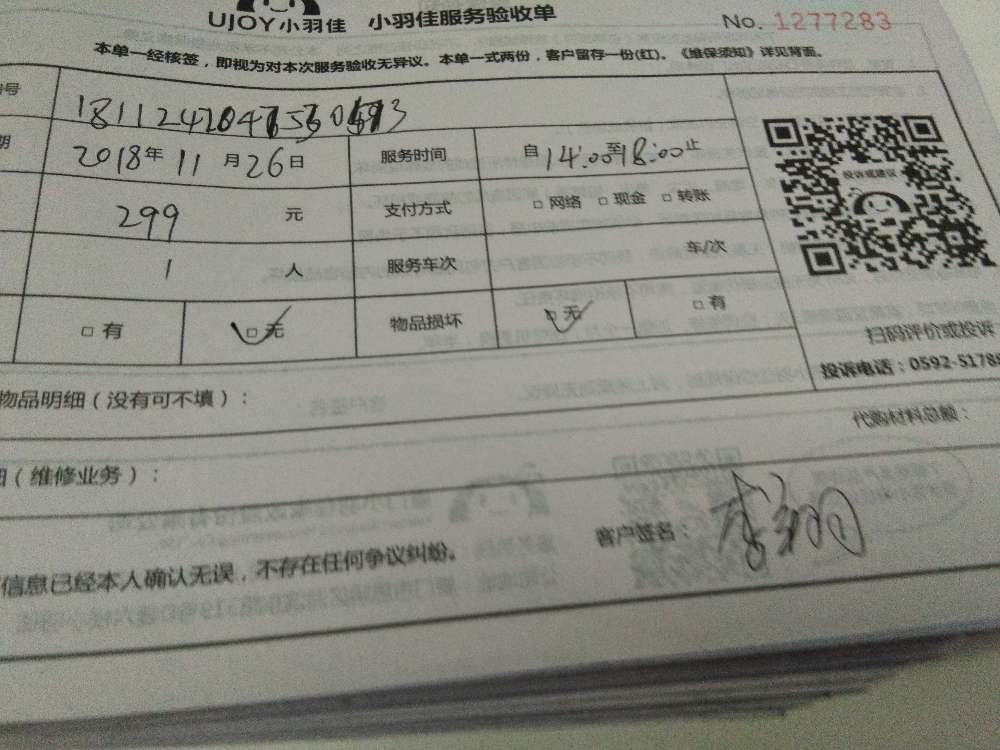 UJOY小羽佳 小羽佳服务验收单
No. 1277283
本单一经核签，即视为对本次服务验收无异议。本单一式两份，客户留存一份(红)。《维保须知》详见背面。
号
期 2018年11月26日 服务时间 自14:00至18:00止
299 元 支付方式 □ 网络 □ 现金 □ 转账
1 人 服务车次 车/次
□ 有 □ 无 物品损坏 □ 无 □ 有
投诉或建议
扫码评价或投诉
投诉电话：0592-5178
物品明细（没有可不填）：
代购材料总额：
细（维修业务）：
客户签名：
信息已经本人确认无误，不存在任何争议纠纷。